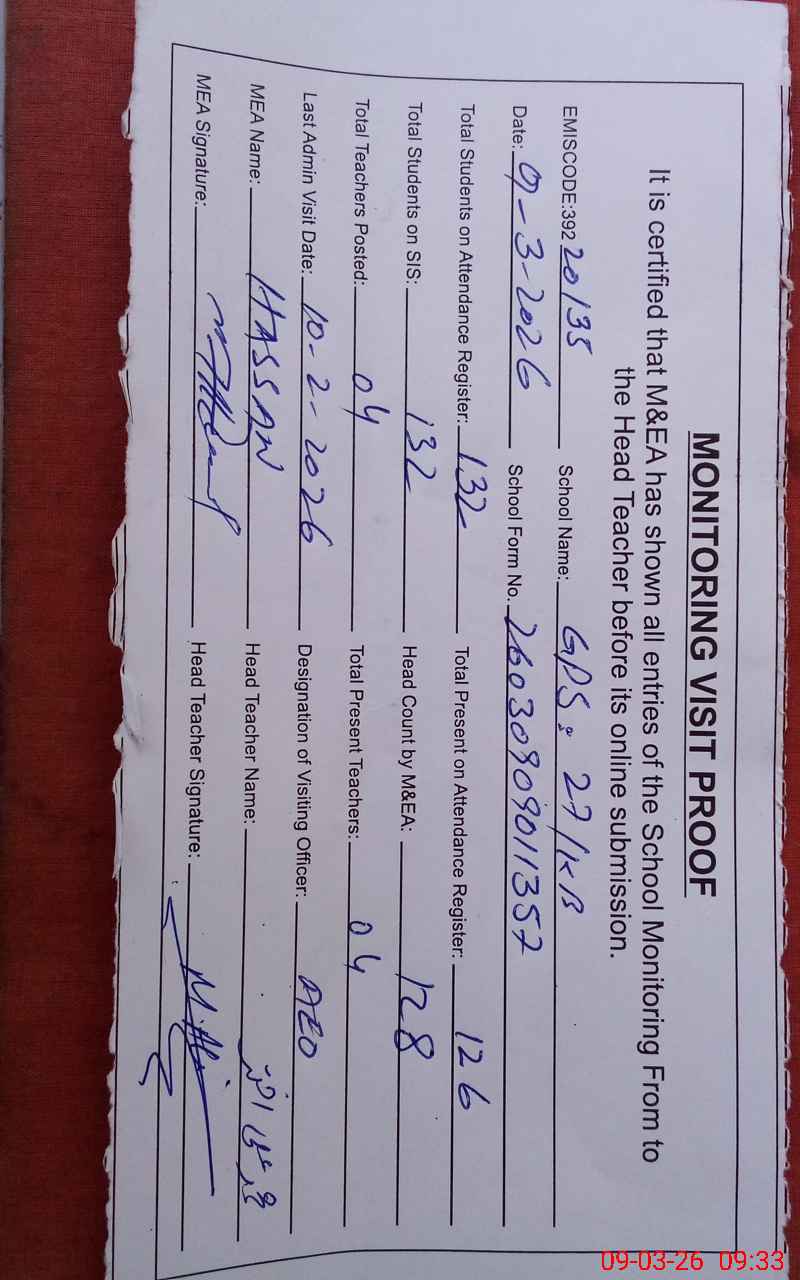 MONITORING VISIT PROOF
It is certified that M&EA has shown all entries of the School Monitoring From to
the Head Teacher before its online submission.
EMISCODE:392 20135 School Name: GPS: 27/KB
Date: 09-3-2026 School Form No. 26030909011357
Total Students on Attendance Register: 132 Total Present on Attendance Register: 126
Total Students on SIS: 132 Head Count by M&EA: 128
Total Teachers Posted: 04 Total Present Teachers: 04
Last Admin Visit Date: 10-2-2026 Designation of Visiting Officer: AEO
MEA Name: HASSAN Head Teacher Name:
MEA Signature: Head Teacher Signature:
09-03-26 09:33